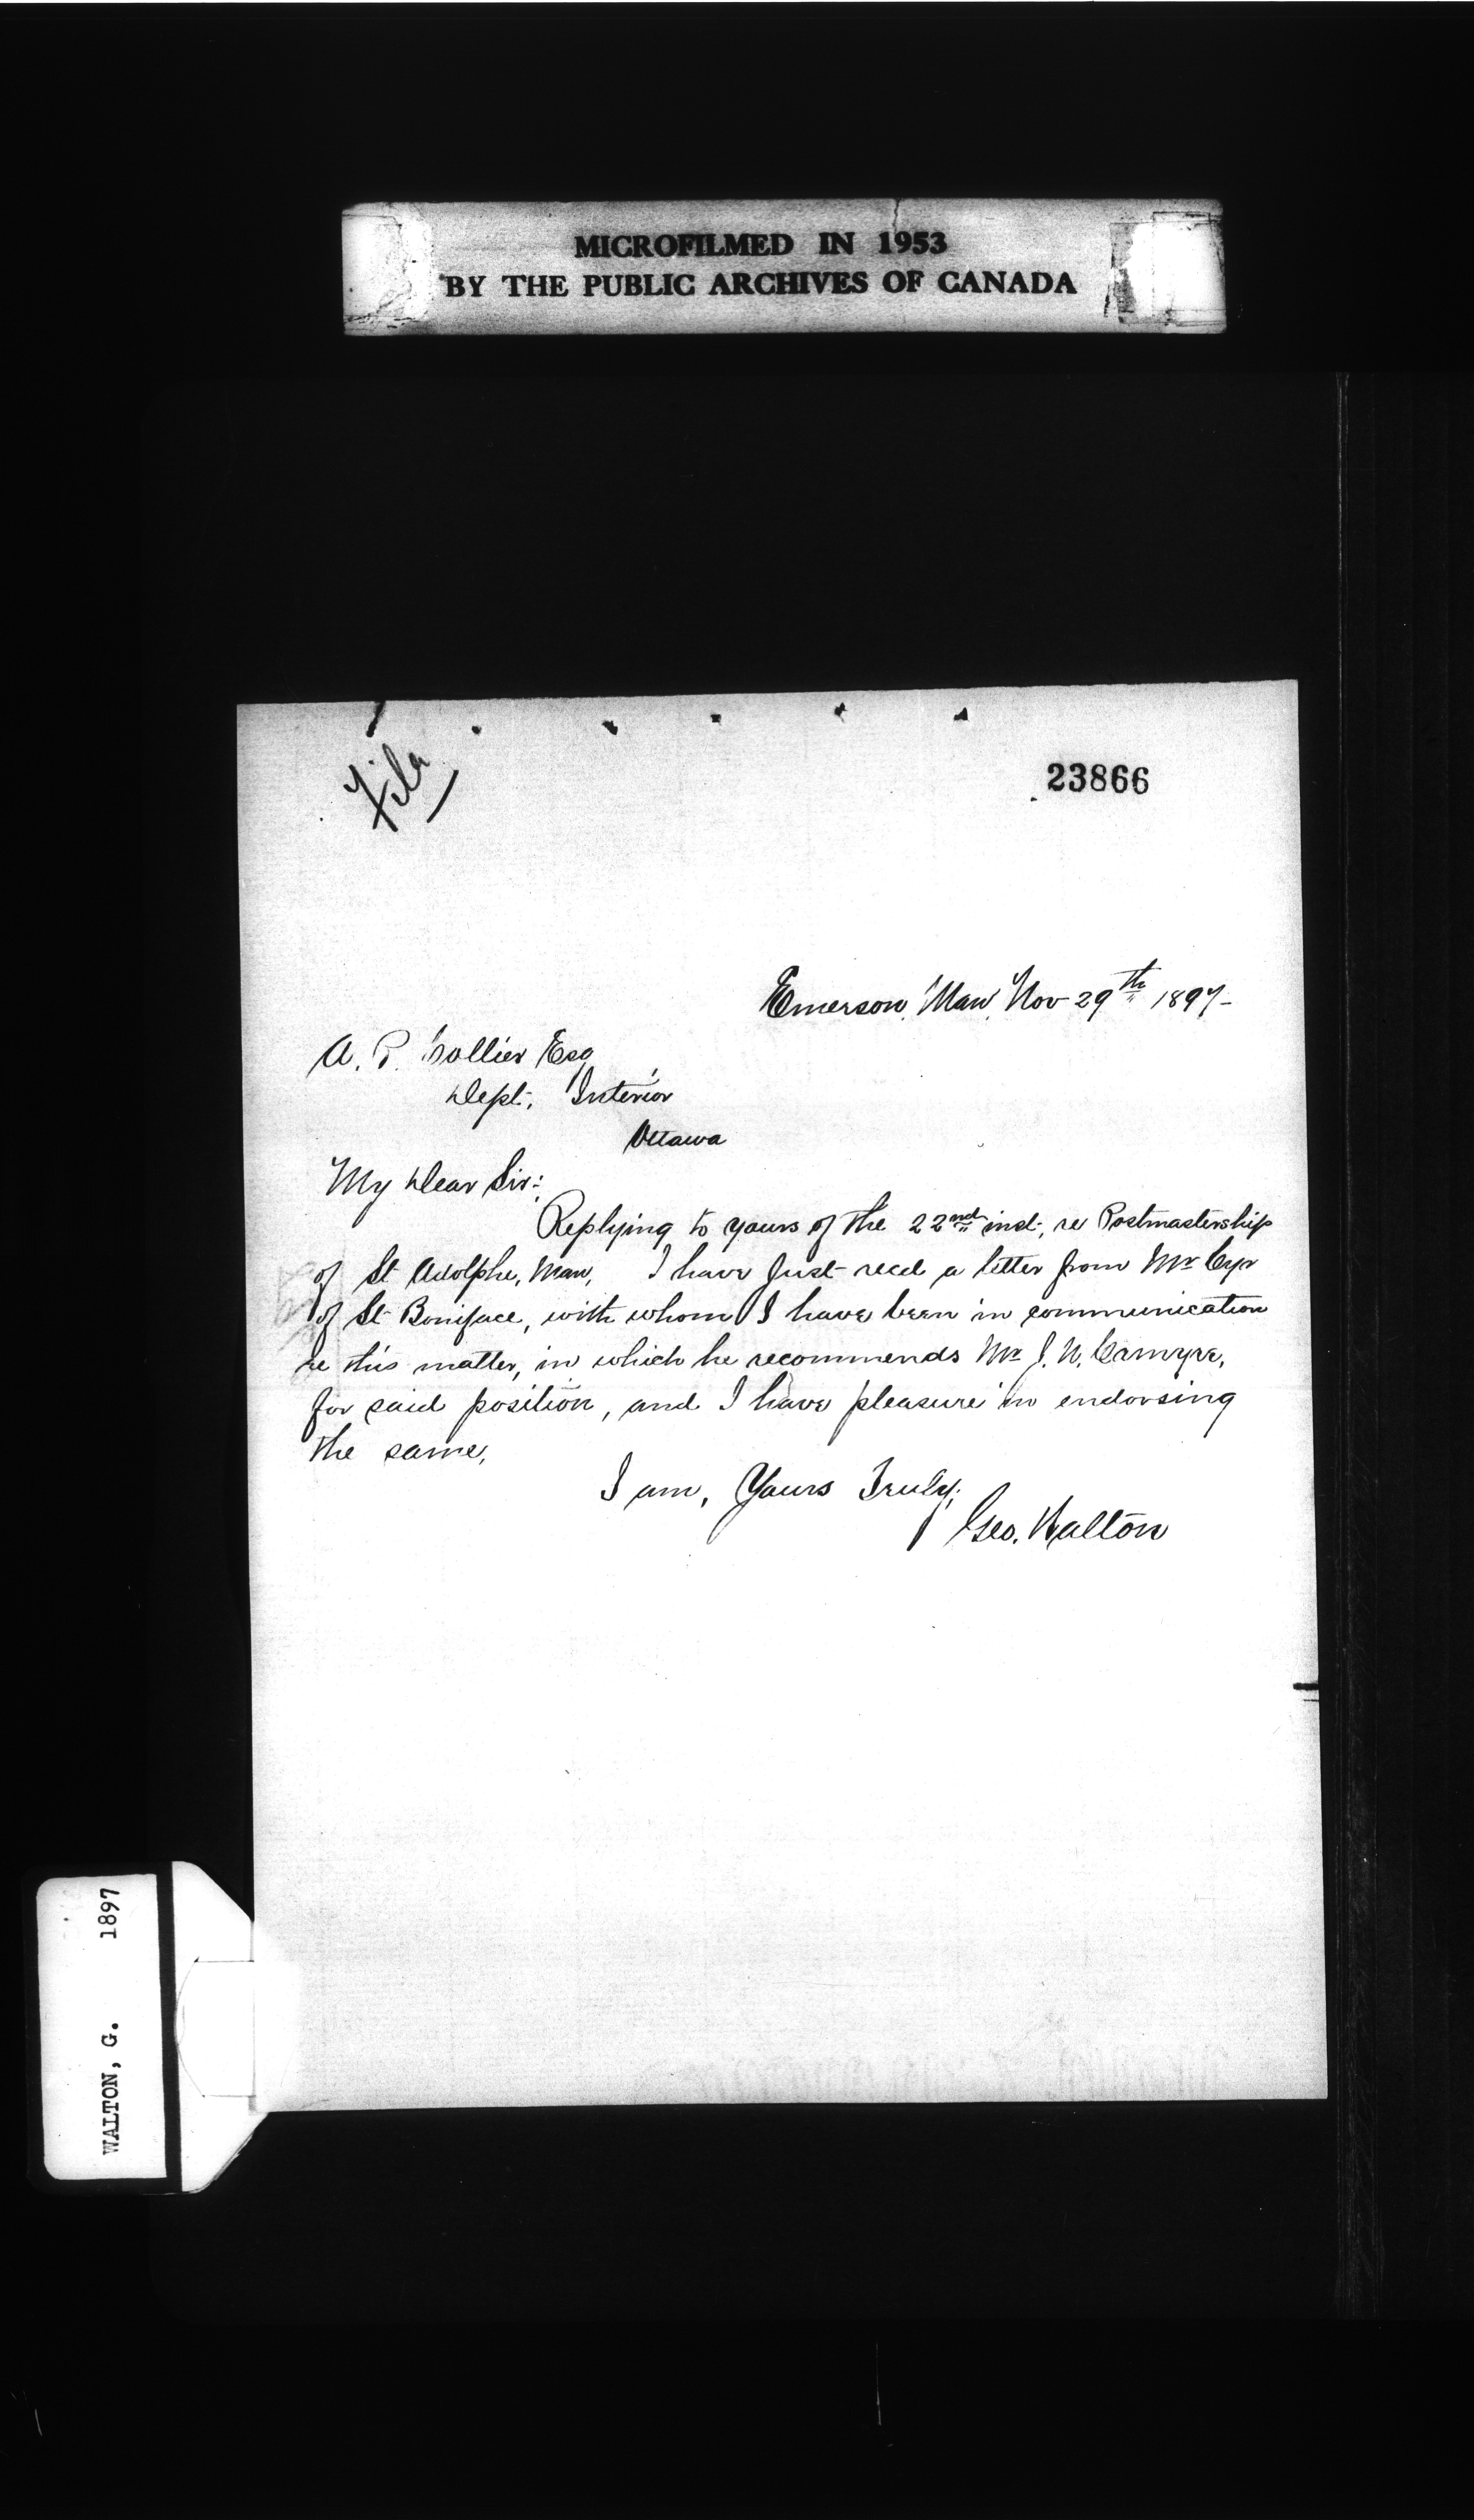 MICROFILMED IN 1953
BY THE PUBLIC ARCHIVES OF CANADA
File
23866
Emerson, Man, Nov 29th 1897-
A. P. Collier Esq
Dept. Interior
Ottawa
My Dear Sir:
Replying to yours of the 22nd inst, re Postmastership
of St Adolphe, Man, I have just recd a letter from Mr Cyr
of St Boniface, with whom I have been in communication
re this matter, in which he recommends Mr J. N.
for said position, and I have pleasure in endorsing
the same,
I am, Yours Truly,
Geo. Walton
WALTON, G. 1897